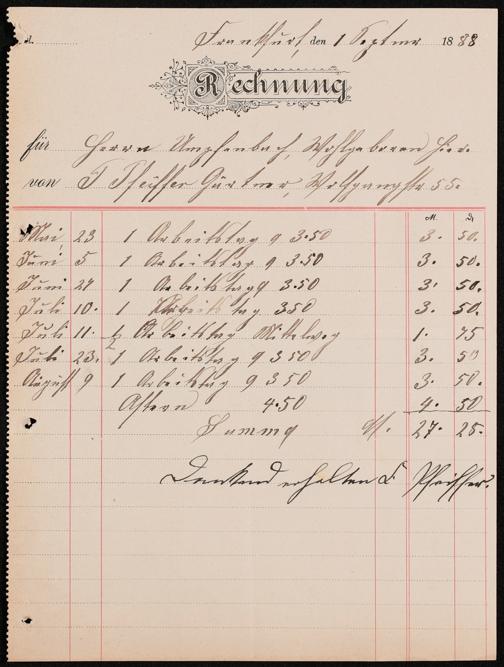 Frankfurt, den 1 Septmr 1888
Rechnung
für Herrn Umpfenbach, Wohlgeboren hier.
von F Pfeiffer Gärtner, Wolfgangstr 55.
M. ₰
Mai 23 1 Arbeitstag 9 3.50 3. 50.
Juni 5 1 Arbeitstag 9 3.50 3. 50.
Juni 27 1 Arbeitstag 9 3.50 3. 50.
Juli 10. 1 Arbeitstag 350 3. 50.
Juli 11. ½ Arbeitstag Mittelweg 1. 75
Juli 23. 1 Arbeitstag 9 3 50 3. 50
August 9 1 Arbeitstag 9 3 50 3. 50.
Astern 4.50 4. 50
Summa M. 27. 25.
Dankend erhalten F. Pfeiffer.